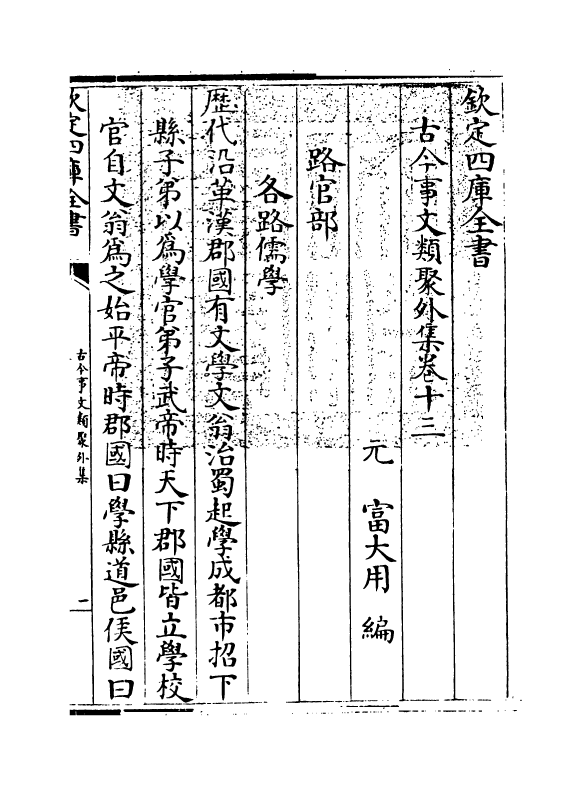 欽定四庫全書
古今事文類聚外集卷十三
元 富大用 編
路官部
各路儒學
歷代沿革漢郡國有文學文翁治蜀起學成都市招下
縣子弟以為學官弟子武帝時天下郡國皆立學校
官自文翁為之始平帝時郡國曰學縣道邑侯國曰
欽定四庫全書
古今事文類聚外集
一